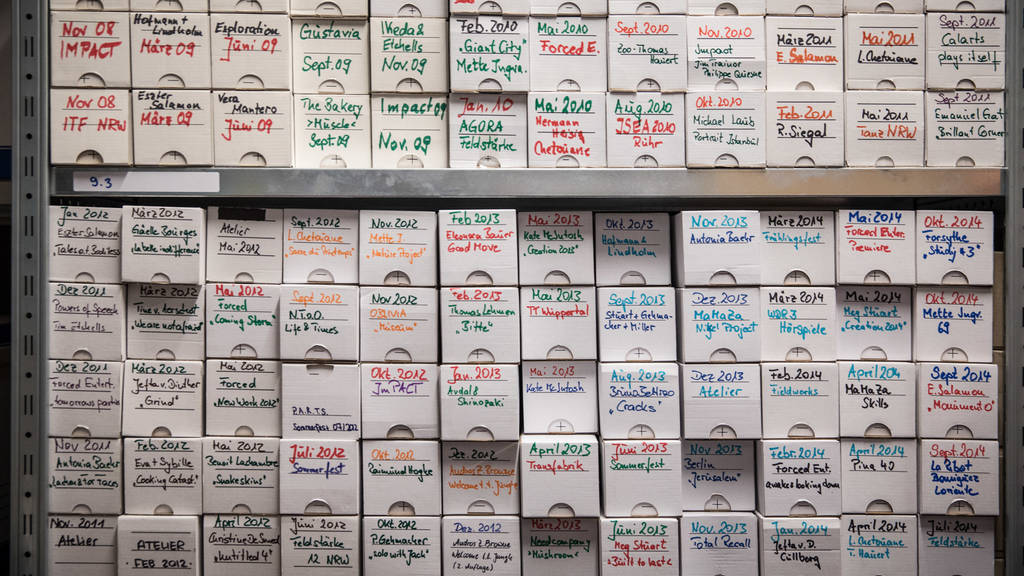 Nov 08
IMPACT
Hofmann +
Lindholm
März 09
Exploration
Juni 09
Gustavia
Sept. 09
Ikeda &
Etchells
Nov. 09
Feb. 2010
"Giant City"
Mette Ingv.
Mai 2010
Forced E.
Sept. 2010
Zoo-Thomas
Hauert
Nov. 2010
Impact
Jim Trainor
Philippe Quesne
März 2011
E. Salamon
Mai 2011
L. Chetouane
Sept. 2011
Calarts
plays itself
Nov 08
ITF NRW
Eszter
Salamon
März 09
Vera
Mantero
Juni 09
The Bakery
>Müsch<
Sept. 09
Impact 09
Nov. 09
Jan. 10
AGORA
Feldstärke
Mai 2010
Hermann
Heisig
Chetouane
Aug 2010
ISEA 2010
Ruhr
Okt. 2010
Michael Laub
Portrait Istanbul
Feb. 2011
R. Siegal
Mai 2011
Tanz NRW
Sept 2011
Emanuel Gat
Brilliant Corners
9.3
Jan 2012
Eszter Salamon
"Tales of Bodiless"
März 2012
Gaëlle Bourges
"La belle indifference"
Atelier
Mai 2012
Sept. 2012
L. Chetouane
"Sacre du Printemps"
Nov. 2012
Mette I.
"Nature Project"
Feb 2013
Eleanora Bauer
Good Move
Mai 2013
Kate McIntosh
"Creation 2013"
Okt. 2013
Hofmann +
Lindholm
Nov. 2013
Antonia Baehr
März 2014
Frühlingsfest
Mai 2014
Forced Enter.
Premiere
Okt. 2014
Forsythe
"Study #3"
Dez 2011
Powers of Speech
Tim Etchells
März 2012
Tine v. Aerschot
"We are not afraid"
Mai 2012
Forced
"Coming Storm"
Sept. 2012
N.T.o.O.
Life & Times
Nov 2012
"Museum"
Feb. 2013
Thomas Lehmen
"Bitte"
Mai 2013
TT Wuppertal
Sept. 2013
Stuart + Gehma-
cher + Miller
Dez. 2013
MaMaZa
Nifel Project
März 2014
WDR 3
Hörspiele
Mai 2014
Meg Stuart
"Creation 2014"
Okt. 2014
Mette Ingv.
69
Dez 2011
Forced Entert.
"tomorrows parties"
März 2012
Jefta v. Dinther
"Grind"
Mai 2012
Forced
"New Work 2012"
P.A.R.T.S.
Sommerfest 07/2012
Okt. 2012
ImPACT
Jan. 2013
Avdal &
Shinozaki
Mai 2013
Kate McIntosh
Aug. 2013
"Cracks"
Dez 2013
Atelier
Feb. 2014
Fieldworks
April 2014
MaMaZa
Skills
Sept 2014
E. Salamon
"Monument 0"
Nov 2011
Antonia Baehr
Feb. 2012
Eva + Sybille
"Cooking Catast."
Mai 2012
Benoit Lachambre
"Snakeskins"
Juli 2012
Sommerfest
Okt. 2012
Raimund Hoghe
Dez 2012
Andros Z. Browne
Welcome t. t. Jungle
April 2013
Transfabrik
Juni 2013
Sommerfest
Nov 2013
Berlin
"Jerusalem"
Febr. 2014
Forced Ent.
April 2014
Ping 40
Sept. 2014
La Ribot
Nov. 2011
Atelier
ATELIER
FEB 2012
April 2012
Juni 2012
Feldstärke
12 NRW
Okt. 2012
P. Gehmacher
"solo with Jack"
Dez. 2012
Andros Z. Browne
Welcome t.t. Jungle
(2. Auflage)
März 2013
Needcompany
"Mushroom"
Juni 2013
Meg Stuart
"Built to last"
Nov. 2013
Total Recall
Jan. 2014
Jefta v. D.
Cullberg
April 2014
L. Chetouane
T. Hauert
Juli 2014
Feldstärke